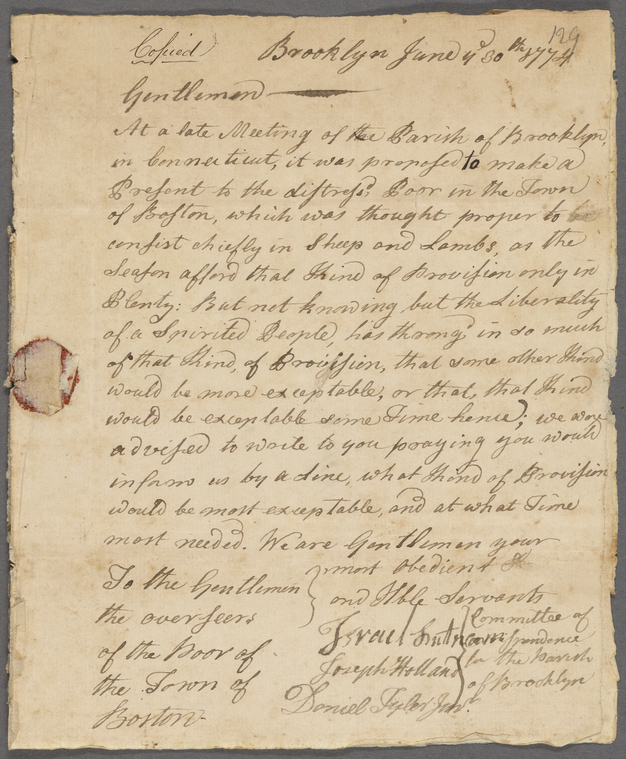 129
Copied Brooklyn June ye 30th 1774
Gentlemen
At a late Meeting of the Parish of Brooklyn,
in Connecticut, it was proposed to make a
Present to the distresd Poor in the Town
of Boston, which was thought proper to be
consist chiefly in Sheep and Lambs, as the
Season afford that Kind of Provision only in
Plenty: But not knowing but the Liberality
of a Spirited People, has throngd in so much
of that Kind, of Provission, that some other Kind
would be more exceptable, or that, that Kind
would be exceptable some Time hence; we were
advised to write to you praying you would
inform us by a Line, what Kind of Provision
would be most exceptable, and at what Time
most needed. We are Gentlemen your
most obedient
and Hble Servants
To the Gentlemen
the overseers
of the Poor of
the Town of
Boston.
Israel Putnam
Joseph Holland
Daniel Tyler Junr
Committee of
Correspondence
for the Parish
of Brooklyn